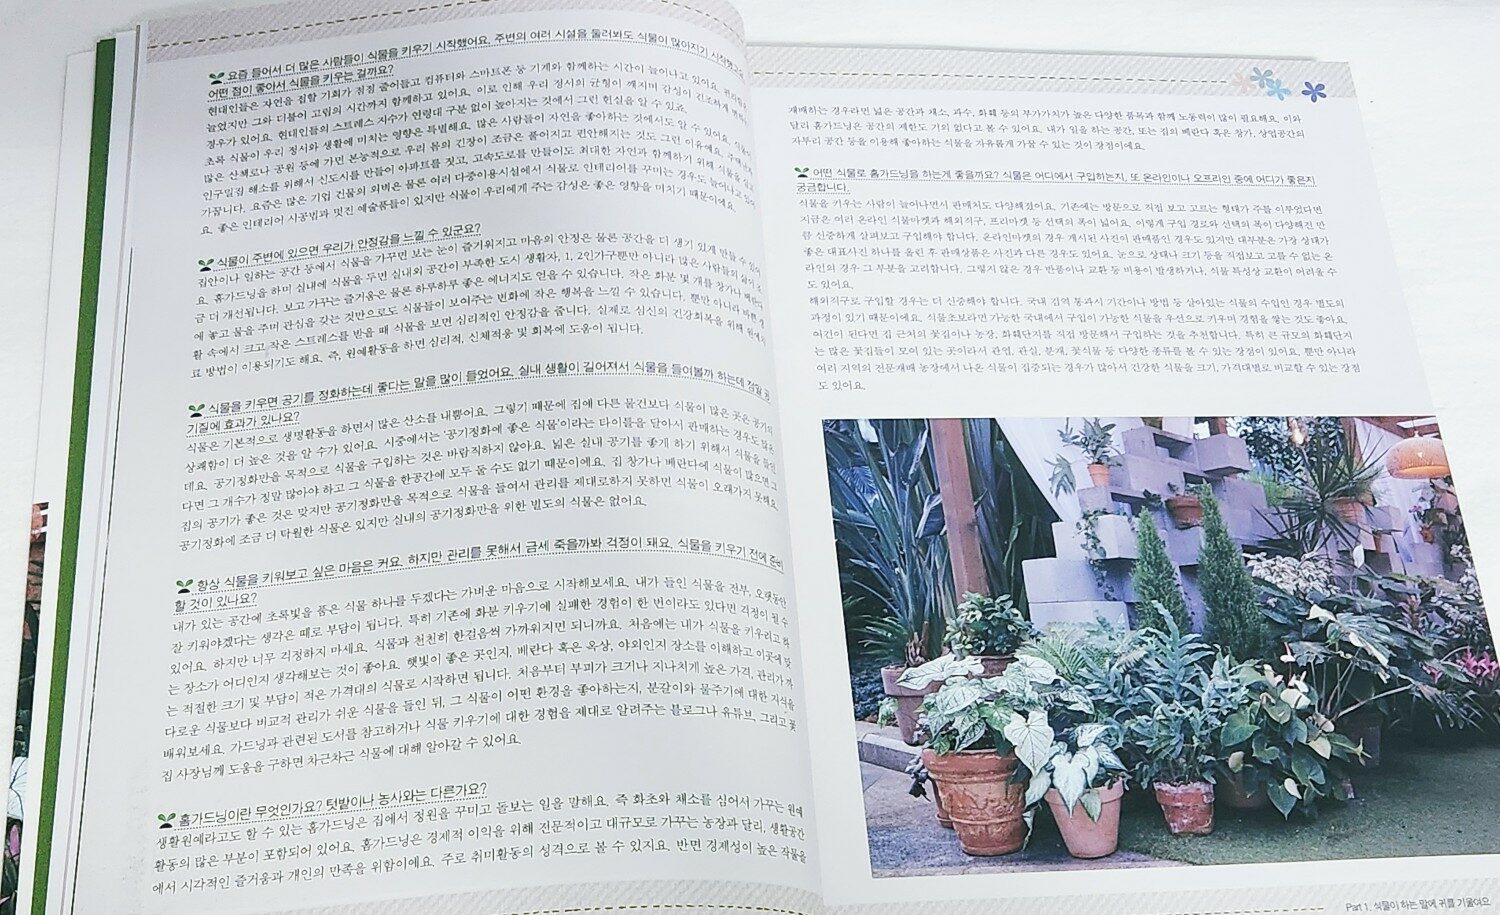 요즘 들어서 더 많은 사람들이 식물을 키우기 시작했어요. 주변의 여러 시설을 둘러봐도 식물이 많아지기 시작했고요.
어떤 점이 좋아서 식물을 키우는 걸까요?
현대인들은 자연을 접할 기회가 점점 줄어들고 컴퓨터와 스마트폰 등 기계와 함께하는 시간이 늘어나고 있어요. 편리함은
늘었지만 그와 더불어 고립의 시간까지 함께하고 있어요. 이로 인해 우리 정서의 균형이 깨지며 감성이 건조하게 변하는
경우가 있어요. 현대인들의 스트레스 지수가 연령대 구분 없이 높아지는 것에서 그런 현실을 알 수 있죠.
초록 식물이 우리 정서와 생활에 미치는 영향은 특별해요. 많은 사람들이 자연을 좋아하는 것에서도 알 수 있어요. 식물이
많은 산책로나 공원 등에 가면 본능적으로 우리 몸의 긴장이 조금은 풀어지고 편안해지는 것도 그런 이유예요. 주택난과
인구밀집 해소를 위해서 신도시를 만들어 아파트를 짓고, 고속도로를 만들어도 최대한 자연과 함께하기 위해 식물을 심고
가꿉니다. 요즘은 많은 기업 건물의 외벽은 물론 여러 다중이용시설에서 식물로 인테리어를 꾸미는 경우도 늘어나고 있어
요. 좋은 인테리어 시공법과 멋진 예술품들이 있지만 식물이 우리에게 주는 감성은 좋은 영향을 미치기 때문이에요.
식물이 주변에 있으면 우리가 안정감을 느낄 수 있군요?
집안이나 일하는 공간 등에서 식물을 가꾸면 보는 눈이 즐거워지고 마음의 안정은 물론 공간을 더 생기 있게 만들 수 있어
요. 홈가드닝을 하며 실내에 식물을 두면 실내외 공간이 부족한 도시 생활자, 1, 2인가구뿐만 아니라 많은 사람들의 삶이 조
금 더 개선됩니다. 보고 가꾸는 즐거움은 물론 하루하루 좋은 에너지도 얻을 수 있습니다. 작은 화분 몇 개를 창가나 베란다
에 놓고 물을 주며 관심을 갖는 것만으로도 식물들이 보여주는 변화에 작은 행복을 느낄 수 있습니다. 뿐만 아니라 바쁜 생
활 속에서 크고 작은 스트레스를 받을 때 식물을 보면 심리적인 안정감을 줍니다. 실제로 심신의 건강회복을 위해 원예치
료 방법이 이용되기도 해요. 즉, 원예활동을 하면 심리적, 신체적응 및 회복에 도움이 됩니다.
식물을 키우면 공기를 정화하는데 좋다는 말을 많이 들었어요. 실내 생활이 길어져서 식물을 들여볼까 하는데 정말 공
기질에 효과가 있나요?
식물은 기본적으로 생명활동을 하면서 많은 산소를 내뿜어요. 그렇기 때문에 집에 다른 물건보다 식물이 많은 곳은 공기의
상쾌함이 더 높은 것을 알 수가 있어요. 시중에서는 '공기정화에 좋은 식물'이라는 타이틀을 달아서 판매하는 경우도 많은
데요. 공기정화만을 목적으로 식물을 구입하는 것은 바람직하지 않아요. 넓은 실내 공기를 좋게 하기 위해서 식물을 들인
다면 그 개수가 정말 많아야 하고 그 식물을 한공간에 모두 둘 수도 없기 때문이에요. 집 창가나 베란다에 식물이 많으면 그
집의 공기가 좋은 것은 맞지만 공기정화만을 목적으로 식물을 들여서 관리를 제대로하지 못하면 식물이 오래가지 못해요.
공기정화에 조금 더 탁월한 식물은 있지만 실내의 공기정화만을 위한 별도의 식물은 없어요.
항상 식물을 키워보고 싶은 마음은 커요. 하지만 관리를 못해서 금세 죽을까봐 걱정이 돼요. 식물을 키우기 전에 준비
할 것이 있나요?
내가 있는 공간에 초록빛을 품은 식물 하나를 두겠다는 가벼운 마음으로 시작해보세요. 내가 들인 식물을 전부, 오랫동안
잘 키워야겠다는 생각은 때로 부담이 됩니다. 특히 기존에 화분 키우기에 실패한 경험이 한 번이라도 있다면 걱정이 될 수
있어요. 하지만 너무 걱정하지 마세요. 식물과 천천히 한걸음씩 가까워지면 되니까요. 처음에는 내가 식물을 키우려고 하
는 장소가 어디인지 생각해보는 것이 좋아요. 햇빛이 좋은 곳인지, 베란다 혹은 옥상, 야외인지 장소를 이해하고 이곳에 맞
는 적절한 크기 및 부담이 적은 가격대의 식물로 시작하면 됩니다. 처음부터 부피가 크거나 지나치게 높은 가격, 관리가 까
다로운 식물보다 비교적 관리가 쉬운 식물을 들인 뒤, 그 식물이 어떤 환경을 좋아하는지, 분갈이와 물주기에 대한 지식을
배워보세요. 가드닝과 관련된 도서를 참고하거나 식물 키우기에 대한 경험을 제대로 알려주는 블로그나 유튜브, 그리고 꽃
집 사장님께 도움을 구하면 차근차근 식물에 대해 알아갈 수 있어요.
홈가드닝이란 무엇인가요? 텃밭이나 농사와는 다른가요?
생활원예라고도 할 수 있는 홈가드닝은 집에서 정원을 꾸미고 돌보는 일을 말해요. 즉 화초와 채소를 심어서 가꾸는 원예
활동의 많은 부분이 포함되어 있어요. 홈가드닝은 경제적 이익을 위해 전문적이고 대규모로 가꾸는 농장과 달리, 생활공간
에서 시각적인 즐거움과 개인의 만족을 위함이에요. 주로 취미활동의 성격으로 볼 수 있지요. 반면 경제성이 높은 작물을
재배하는 경우라면 넓은 공간과 채소, 과수, 화훼 등의 부가가치가 높은 다양한 품목과 함께 노동력이 많이 필요해요. 이와
달리 홈가드닝은 공간의 제한도 거의 없다고 볼 수 있어요. 내가 일을 하는 공간, 또는 집의 베란다 혹은 창가, 상업공간의
자투리 공간 등을 이용해 좋아하는 식물을 자유롭게 가꿀 수 있는 것이 장점이에요.
어떤 식물로 홈가드닝을 하는게 좋을까요? 식물은 어디에서 구입하는지, 또 온라인이나 오프라인 중에 어디가 좋은지
궁금합니다.
식물을 키우는 사람이 늘어나면서 판매처도 다양해졌어요. 기존에는 방문으로 직접 보고 고르는 형태가 주를 이루었다면
지금은 여러 온라인 식물마켓과 해외직구, 프리마켓 등 선택의 폭이 넓어요. 이렇게 구입 경로와 선택의 폭이 다양해진 만
큼 신중하게 살펴보고 구입해야 합니다. 온라인마켓의 경우 게시된 사진이 판매품인 경우도 있지만 대부분은 가장 상태가
좋은 대표사진 하나를 올린 후 판매상품은 사진과 다른 경우도 있어요. 눈으로 상태나 크기 등을 직접보고 고를 수 없는 온
라인의 경우 그 부분을 고려합니다. 그렇지 않은 경우 반품이나 교환 등 비용이 발생하거나, 식물 특성상 교환이 어려울 수
도 있어요.
해외직구로 구입할 경우는 더 신중해야 합니다. 국내 검역 통과시 기간이나 방법 등 살아있는 식물의 수입인 경우 별도의
과정이 있기 때문이에요. 식물초보라면 가능한 국내에서 구입이 가능한 식물을 우선으로 키우며 경험을 쌓는 것도 좋아요.
여건이 된다면 집 근처의 꽃집이나 농장, 화훼단지를 직접 방문해서 구입하는 것을 추천합니다. 특히 큰 규모의 화훼단지
는 많은 꽃집들이 모여 있는 곳이라서 관엽, 관실, 분재, 꽃식물 등 다양한 종류를 볼 수 있는 장점이 있어요. 뿐만 아니라
여러 지역의 전문재배 농장에서 나온 식물이 집중되는 경우가 많아서 건강한 식물을 크기, 가격대별로 비교할 수 있는 장점
도 있어요.
Part 1. 식물이 하는 말에 귀를 기울여요